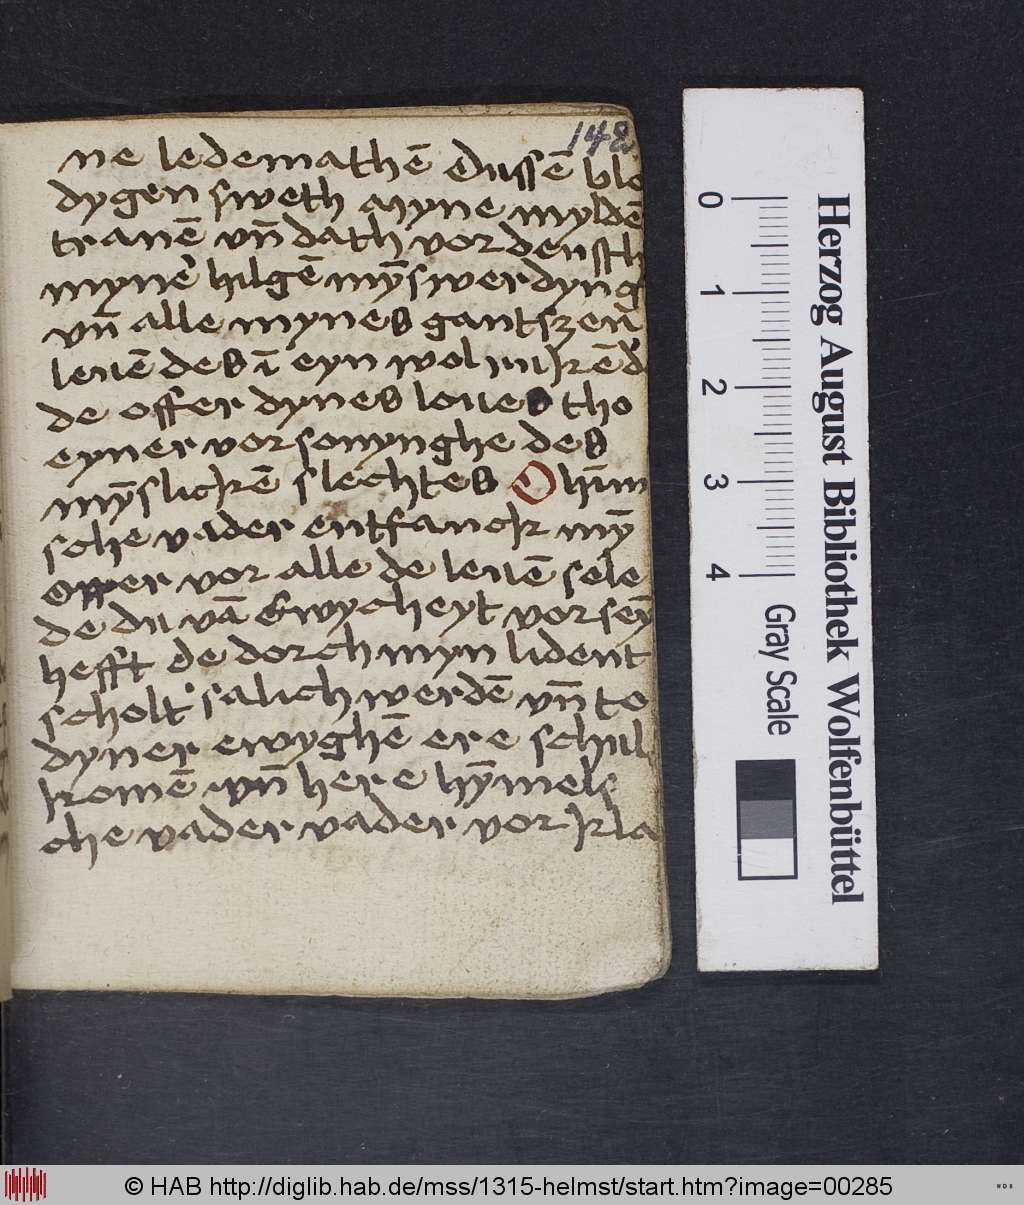 148
ne ledemathē dussē blo
dygen sweth myne myldē
tranē vn̄ dath vor densth
mynē hilgē mȳswerdyng
vn̄ alle mynes gantszen
leuē des ī eyn wol rukē d
de offer dynes loues tho
eyner vorsonynghe des
mȳslickē slechtes O hīm
sche vader entfanck mȳ
offer vor alle de leuē sele
de du vā ewycheyt vorseȳ
hefft de dorch myn lident
scholt salich werdē vn̄ to
dyner ewyghē ere schul
komē vn̄ here hȳmels
che vader vader vor kla
Herzog August Bibliothek Wolfenbüttel
0 1 2 3 4
Gray Scale
© HAB http://diglib.hab.de/mss/1315-helmst/start.htm?image=00285
HAB